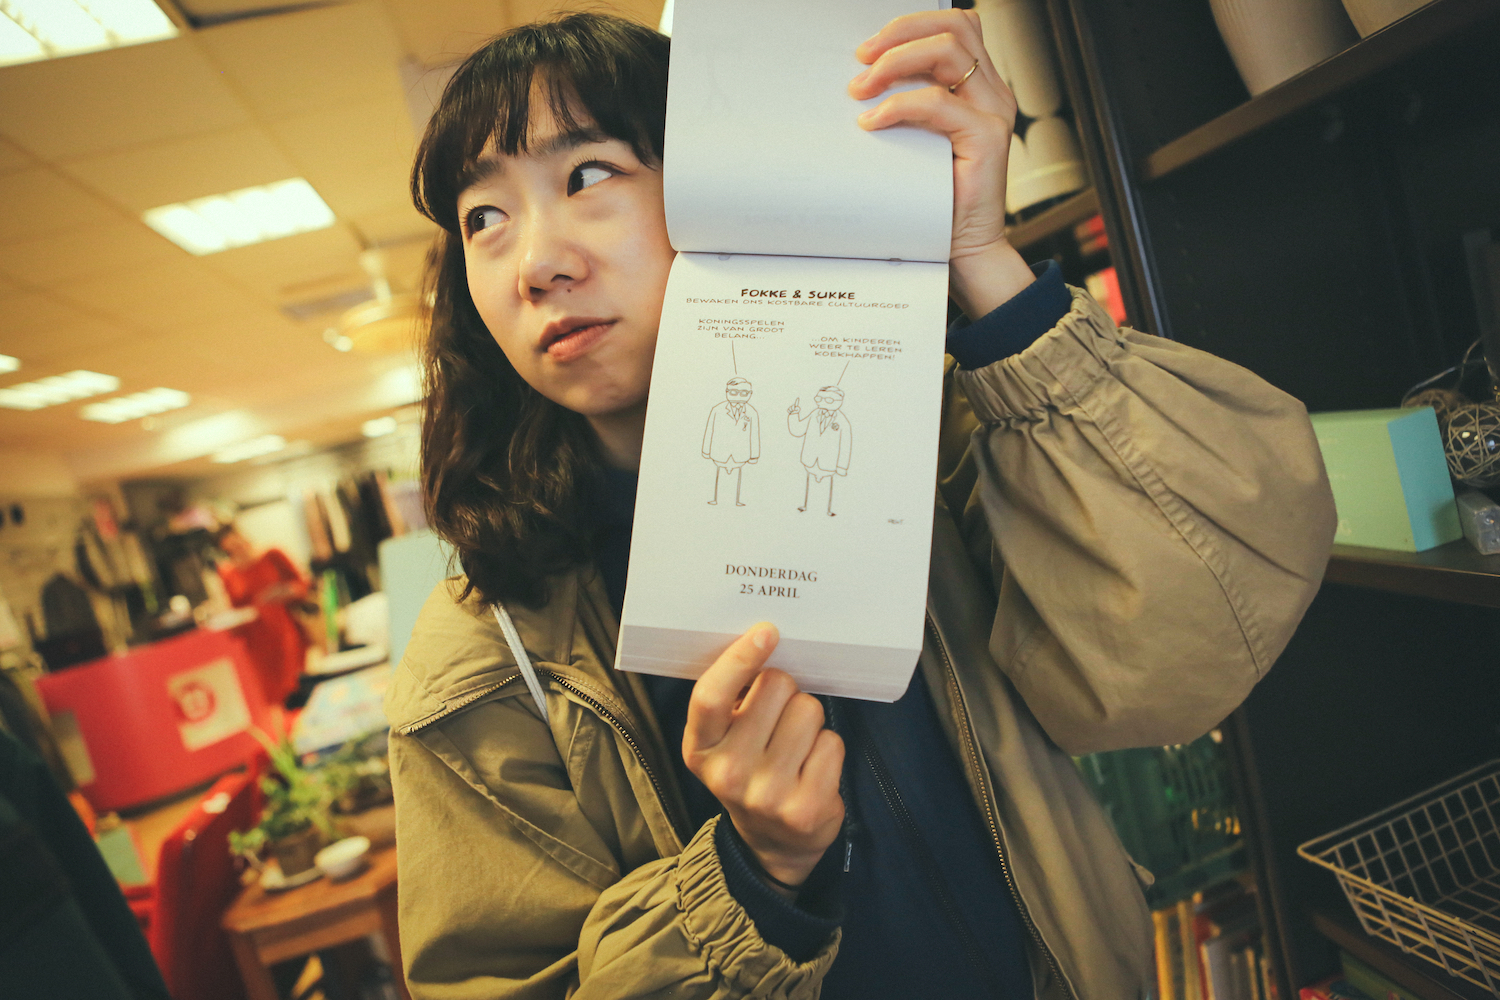 FOKKE & SUKKE
BEWAKEN ONS KOSTBARE CULTUURGOED
KONINGSSPELEN
ZIJN VAN GROOT
BELANG...
...OM KINDEREN
WEER TE LEREN
KOEKHAPPEN!
DONDERDAG
25 APRIL